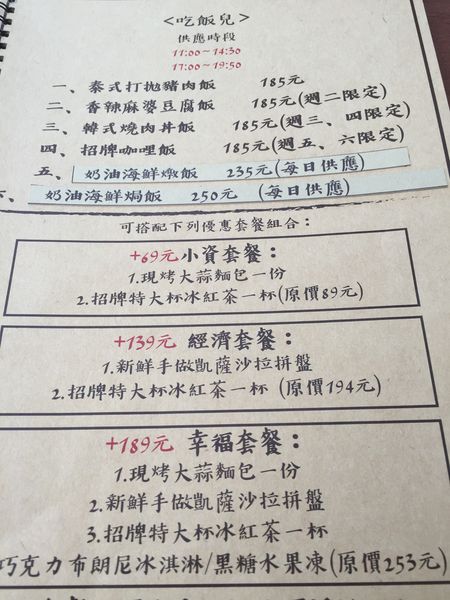 <吃飯兒>
供應時段
11:00~14:30
17:00~19:50
一、 泰式打拋豬肉飯 185元
二、 香辣麻婆豆腐飯 185元(週二限定)
三、 韓式燒肉丼飯 185元(週三、四限定)
四、 招牌咖哩飯 185元(週五、六限定)
五、 奶油海鮮燉飯 235元(每日供應)
六、 奶油海鮮焗飯 250元 (每日供應)
可搭配下列優惠套餐組合：
+69元小資套餐：
1.現烤大蒜麵包一份
2.招牌特大杯冰紅茶一杯(原價89元)
+139元 經濟套餐：
1.新鮮手做凱薩沙拉拼盤
2.招牌特大杯冰紅茶一杯 (原價194元)
+189元 幸福套餐：
1.現烤大蒜麵包一份
2.新鮮手做凱薩沙拉拼盤
3.招牌特大杯冰紅茶一杯
巧克力布朗尼冰淇淋/黑糖水果凍(原價253元)